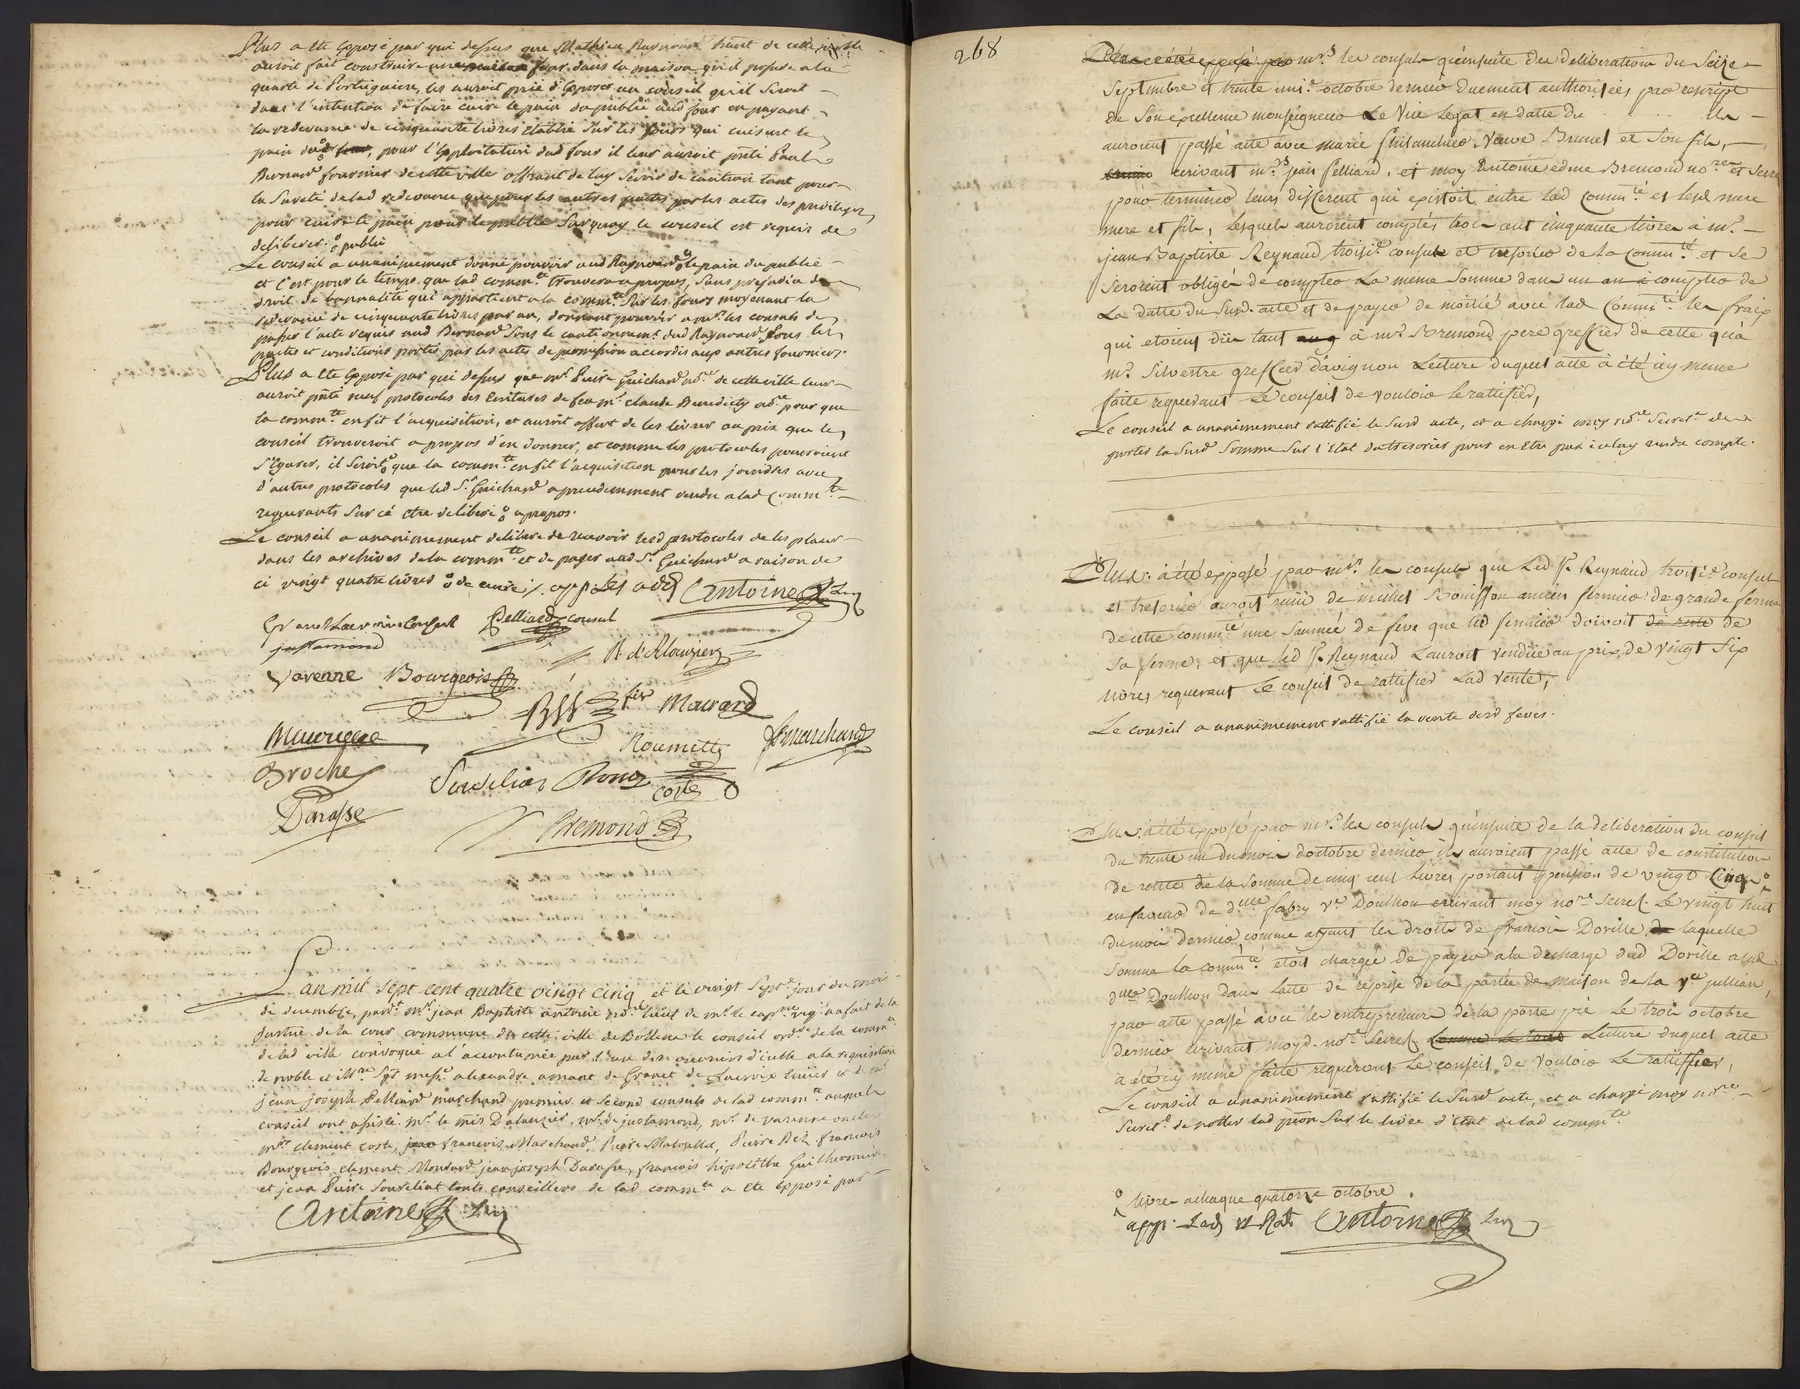 Plus a ete Exposé par qui dessus que Mathieu Raynaud habt de cette ville
auroit fait construire un four dans la maison qu'il possede a la
quarte de Portiguiere, les auroit prié d'Exposer au conseil qu'il seroit
dans l'intention de faire cuire le pain du public aud four en payant
la redevance de cinquante livres etablie sur les fours qui cuisent le
pain du, pour l'Exploitation dud four il leur auroit pnté Paul
Bernard fournier de cette ville offrant de luy servir de caution tant pour
la sureté de lad redevance que pour les autres pactes portes actes des privileges
pour cuire le pain pour le public surquoy le conseil est requis de
deliberer. o public
Le conseil a unanimement donné pouvoir aud Raynaud o le pain du public
et c'est pour le temps que lad commte trouvera a propos, sans prejudice du
droit de bannalité qui appartient a la commté sur les fours moyenant la
redevance de cinquante livres par an, donnant pouvoir a mrs les consuls de
passer l'acte requis aud Bernard sous le cautionnement dud Raynaud sous les
pactes et conditions portés par les actes de permission accordés aux autres fourniers.
Plus a ete Exposé par qui dessus que mr Pierre Guichard nore de cette ville leur
auroit pnté neuf protocoles des Ecritures de feu mr claude Benedicty nore pour que
la commté en fit l'acquisition, et auroit offert de les livrer au prix que le
conseil trouveroit a propos d'en donner, et comme les protocoles pourroient
s'Egarer, il seroit o que la commté en fit l'acquisition pour les joindre avec
d'autres protocoles que led Sr Guichard a precedemment vendu a lad Commté
requerants sur ce etre deliberé o a propos.
Le conseil a unanimement deliberé de recevoir lesd protocoles de les placer
dans les archives de la commté et de payer aud Sr Guichard a raison de
ci vingt quatre livres o Antoine
Pelliard consul
justamond
Varenne Bourgeois
fix Mairard
Roumette Marchand
Broche
coste
Darasse
Bremond
L'an mil sept cent quatre vingt cinq, et le vingt sept jour du mois
de decembre, pardt mr jean Baptiste antoine nore lieut de mr le capne vig a fait de la
Justice de la cour commune de cette ville de Bollene le conseil ordre de la commté
de lad ville convoqué a l'accoutumée par l'un des couriers d'icelle a la requisition
de noble et illre Sgr messe alexandre amant de Granet de Lacroix
jean joseph Pelliard marchand premier et second consuls de lad commté auquel
conseil ont assisté mr le mis Dalauzier, mr de justamond, mr de varenne
mrs clement coste, francois Marchand, Pierre Bez, francois
Bourgeois, clement Monard, jean joseph Darasse, francois hipolithe Guilhermier
et jean Pierre Sourdelliat touts conseillers de lad commté a ete Exposé par
Antoine
268
mrs les consuls qu'ensuite des deliberations du Seize
Septembre et trente uni. octobre dernier duement authorisées par rescript
de Son excellence monseigneur Le Vice Legat en datte du ils
auroient passé acte avec marie Veuve Brunel et Son fils,
ecrivant mrs jean Pelliard, et moy Antoine edme Bremond nores et Secre
pour terminer leurs different qui existoit entre lad Commté et lesd mere
mere et fils, Lesquels auroient comptés trois cent cinquante livres à mr
jean Baptiste Reynaud troisie consul et tresorier de la Commté et se
seroient obligés de compter La meme Somme dans un an à compter de
La datte du Susd. acte et de payer de moitié avec lad Commté les fraix
qui etoient dûs tant à mr Bremond pere greffier de cette qu'à
mr Silvestre greffier d'avignon Lecture duquel acte à été icy meme
faite requerant Le conseil de vouloir le rattifier,
Le conseil a unanimement rattifié le Susd acte, et a chargé moy nore Secrete de
porter la Susd Somme Sur l'Etat du tresorier pour en etre par icelluy rendu compte.
Plus: à été exposé par mrs. les consuls que Led Sr Reynaud troisie consul
et tresorier auroit reçu de michel Bouisson ancien fermier de grande ferme
de cette commté une Saumée de feve que led fermier devoit de
Sa ferme, et que led Sr Reynaud L'auroit vendüe au prix de vingt Six
livres, requerant Le conseil de rattifier Lad vente;
Le conseil a unanimement rattifié la vente desd feves.
Plus: à été exposé par mrs les consuls qu'ensuite de la deliberation du conseil
du trente un du mois d'octobre dernier ils auroient passé acte de constitution
de rente de la Somme de cinq cent livres portant pension de vingt cinq o
en faveur de dme fabry ve Doulhon ecrivant moy nore Secre. Le vingt huit
du mois dernier comme ayant les droits de francois Dorville laquelle
Somme la commté etoit chargée de payer a la decharge dud Dorville a lad
dme Doulhon dans l'acte de reprise de la portée de maison de la ve jullian,
par acte passé avec les entrepreneurs de la porte Le trois octobre
dernier ecrivant moyd. nore Secre Lecture duquel acte
à été icy meme faite requerant Le conseil de vouloir Le rattiffier,
Le conseil a unanimement rattifié le Susd acte, et a chargé moy nore
Secrete de notter lad pnion Sur le livre d'Etat de lad commté.
o livres a chaque quatorze octobre.
Antoine